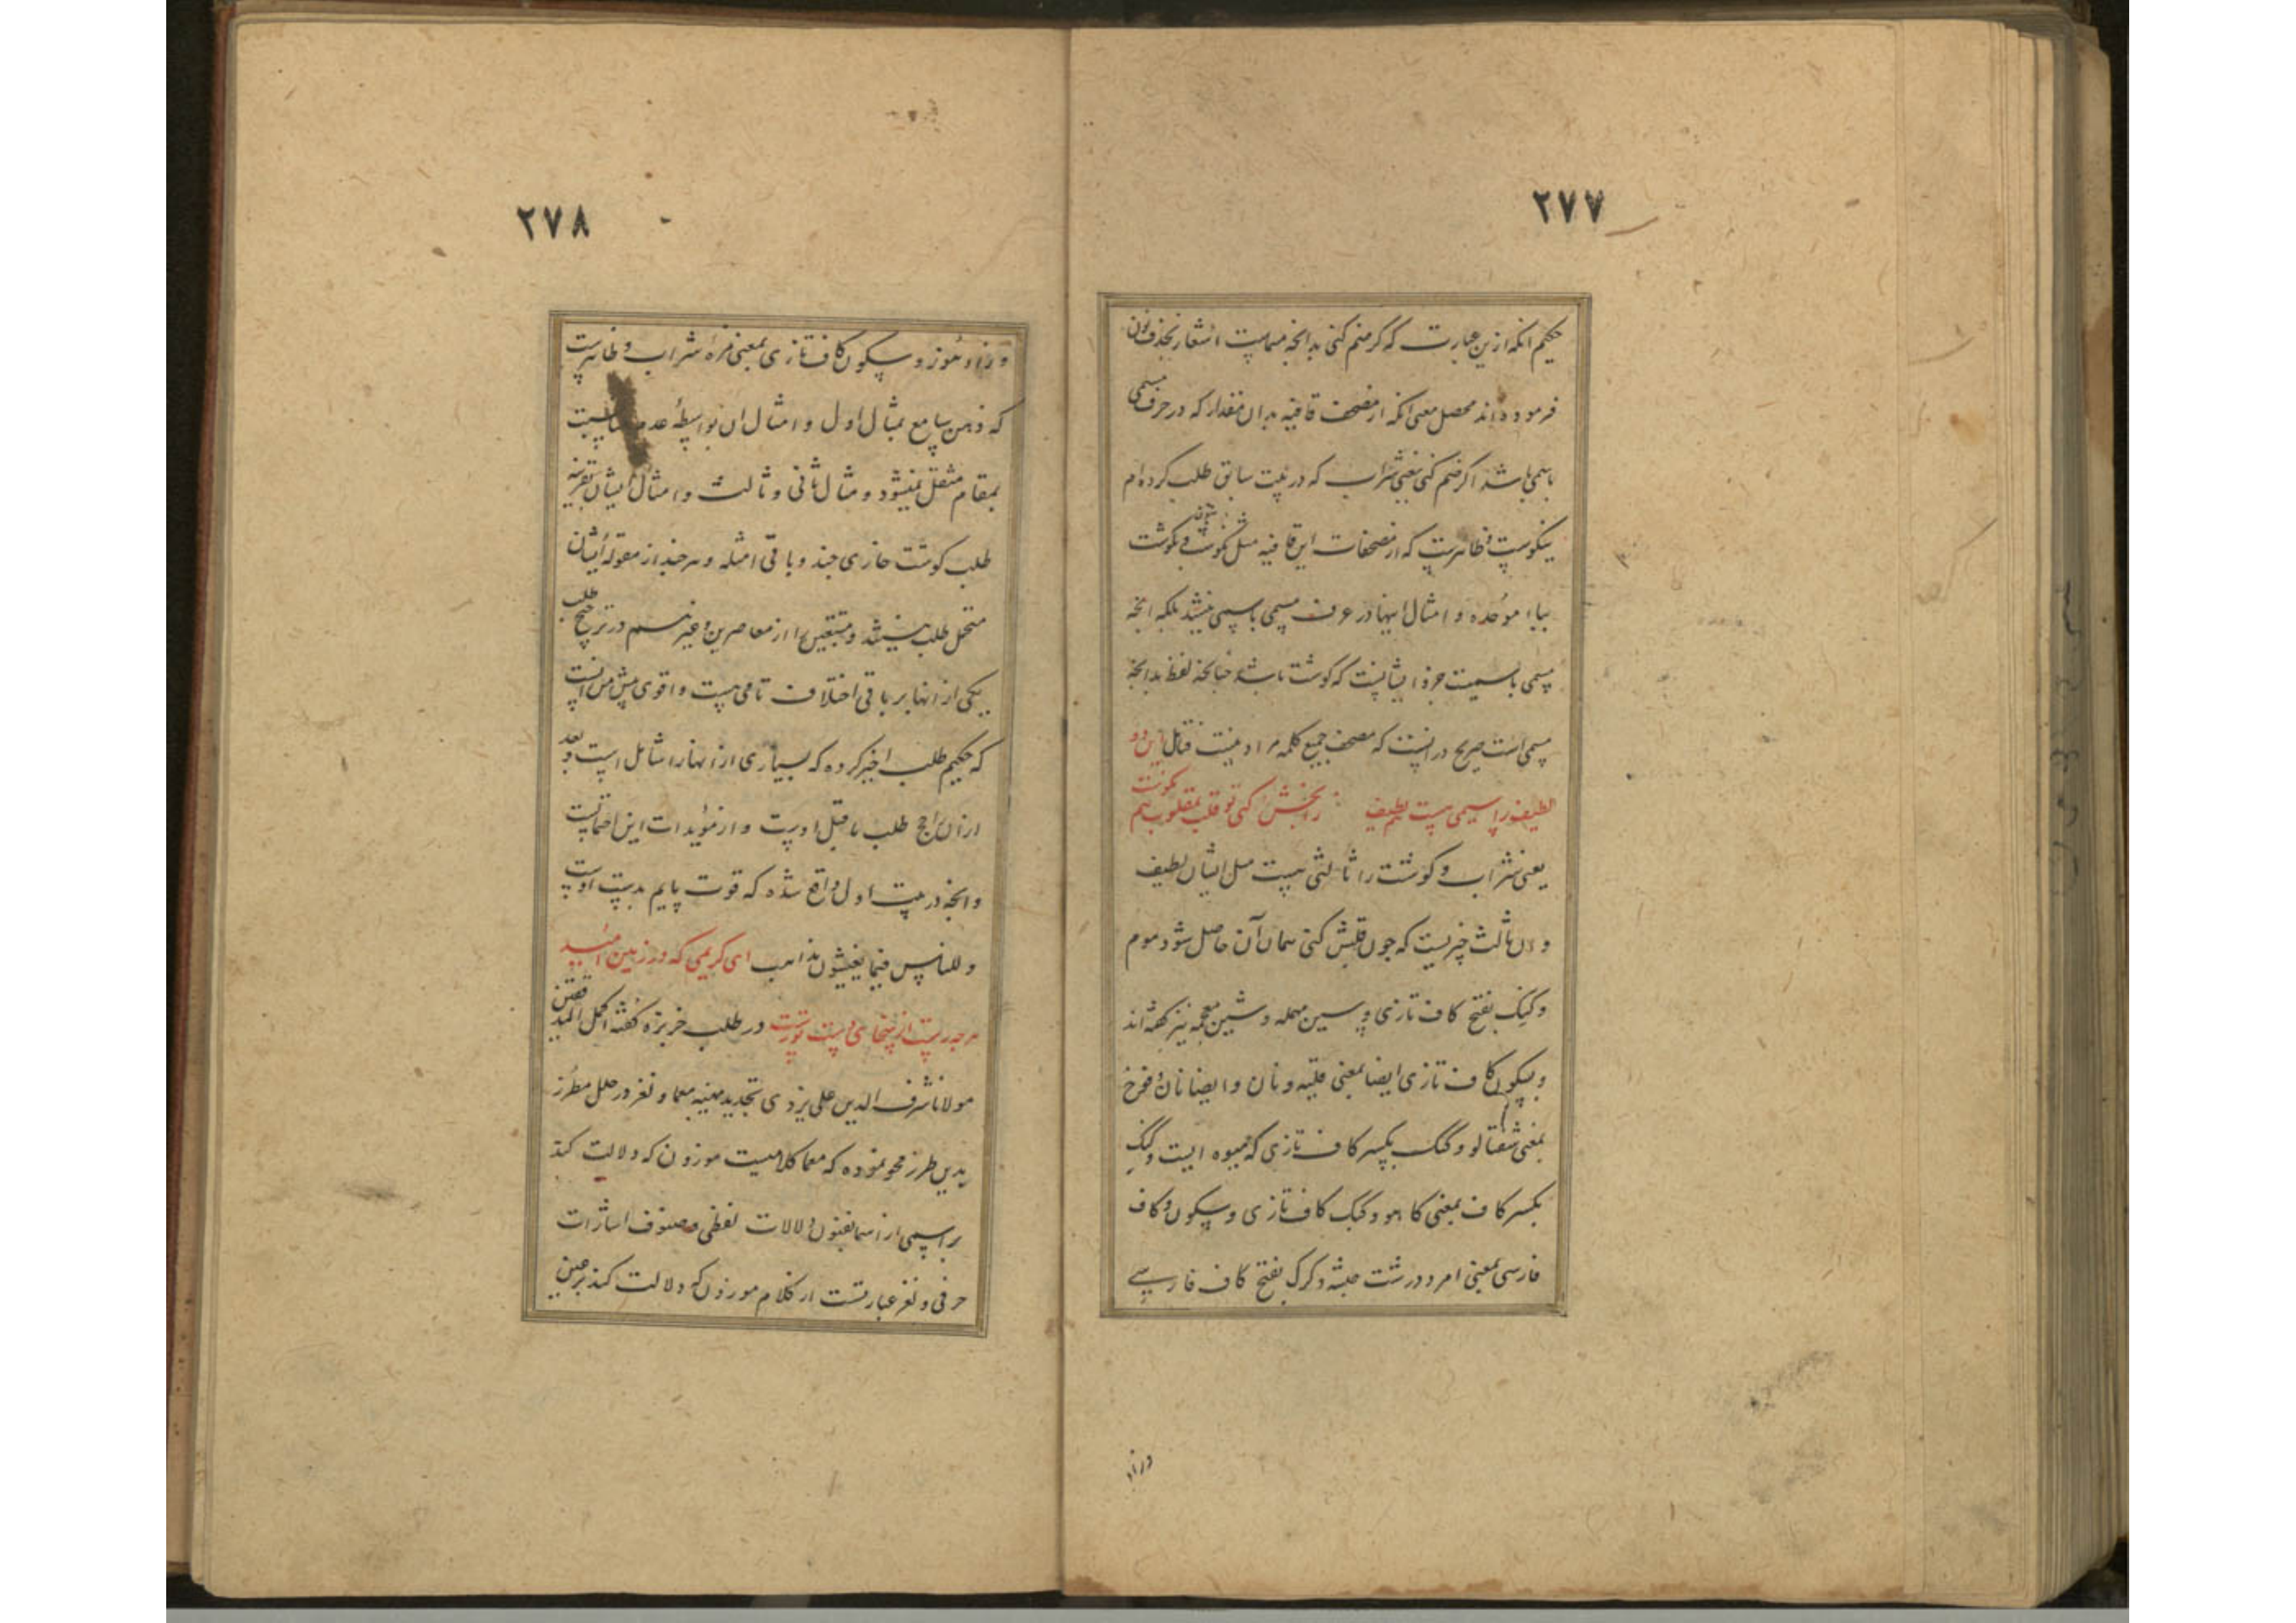 ۲۷۷
حکیم انکه ازین عبارت که کرضم کنی بدانچه مسماست اشعار بحذف نون
فرموده‌اند محصل معنی انکه از مصحف قافیه بدان مقدار که در حرف مسمی
باسمی باشد اکر ضم کنی یعنی شراب که در بیت سابق طلب کرده‌ام
نیکوست و ظاهرست که از مصحفات این قافیه مثل نکوشت و بکوشت
بباء موحده و امثال اینها در عرف مسمی باسمی نیشد بلکه انچه
مسمی باسمیت جزو ایشانست که کوشت باشد چنانچه لفظ بدانچه
مسمی است صریح درانست که مصحف جمیع کلمه مراد نیست فتامل این دو
لطیف را سیمی هست لطیف را بخش کنی تو قلب مقلوب نیم نکوست
یعنی شراب و کوشت را ثالثی هست مثل ایشان لطیف
و ان ثالث چیزیست که چون قلبش کنی همان آن حاصل شود موم
و کیک بفتح کاف تازی و سین مهمله و شین معجمه نیز کفته‌اند
و بسکون کاف تازی ایضا بمعنی قلیه و نان و ایضا نان و فرخ
بمعنی شفتالو و کنک بکسر کاف تازی که میوه ایست و کنک
بکسر کاف بمعنی کاهو و کنک کاف تازی و سکون و کاف
فارسی بمعنی امرد درشت جثه و کرک بفتح کاف فارسی
وزاء
۲۷۸
وزاء هوز و سکون کاف تازی بمعنی مزهٔ شراب و ظاهرست
که ذهن سامع بمثال اول و امثال ان بواسطهٔ عدم مناسبت
بمقام منتقل نمیشود و مثال ثانی و ثالث و امثال ایشان بقرینه
طلب کوشت حازی چند و باقی امثله و هر چند از مقوله ایشان
متحمل طلب میشد و متتبعین را از معاصرین و غیرهم در ترجیح طلب
یکی از انها بر باقی اختلاف تامی هست و اقوی پیش من انست
که حکیم طلب اخیر کرده که بسیاری از انها را شامل است و بعد
ازان راجح طلب ماقبل اوست و از مؤیدات این احتمالست
وانچه در بیت اول واقع شده که قوت پایم بدست اوست
و للناس فیما یعشقون مذاهب ای کریمی که در زمین امید
هر چه رست از سخای دست تورست در طلب خربزه کفته اکمل المدققین
مولانا شرف الدین علی یزدی تجدید مهنیه معما و لغز در حلل مطرز
بدین طرز محو نموده که معما کلامیست موزون که دلالت کند
بر اسمی از اسما بفنون دلالات لفظی و صنوف اشارات
حرفی و لغز عبارتست از کلام موزون که دلالت کند بر عین